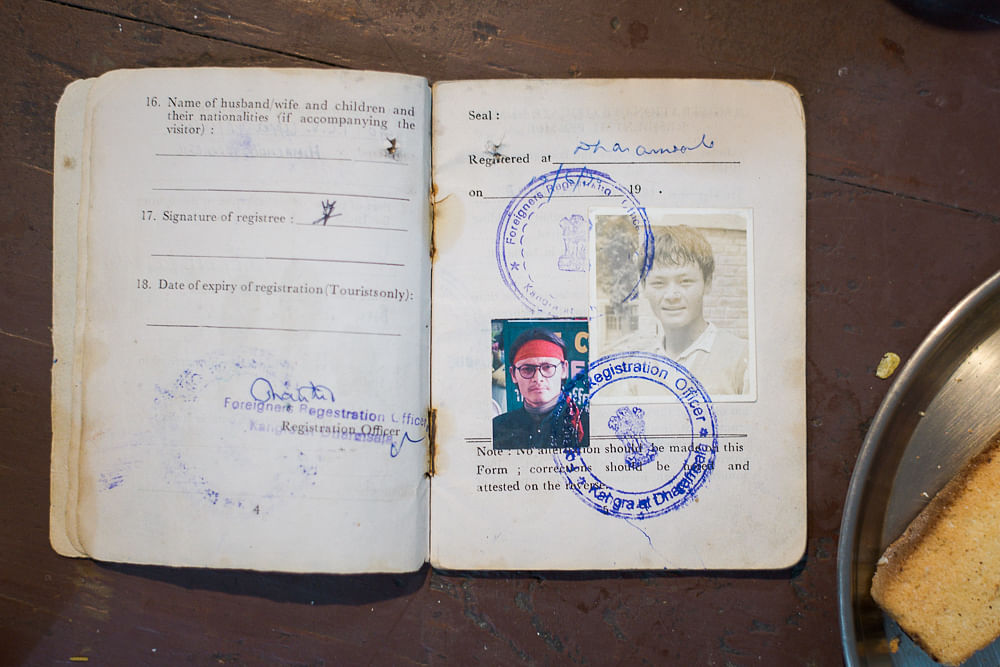 16. Name of husband/wife and children and
their nationalities (if accompanying the
visitor) :
17. Signature of registree :
18. Date of expiry of registration (Tourists only):
Foreigners Regestration Officer
Kangra at Dharamsala
Registration Officer
4
Seal :
Registered at Dharamsala
on 19 .
Foreigners Regestration Officer
Kangra at
Registration Officer
Kangra at Dharamsala
Note : No alteration should be made on this
Form ; corrections should be noted and
attested on the reverse.
5